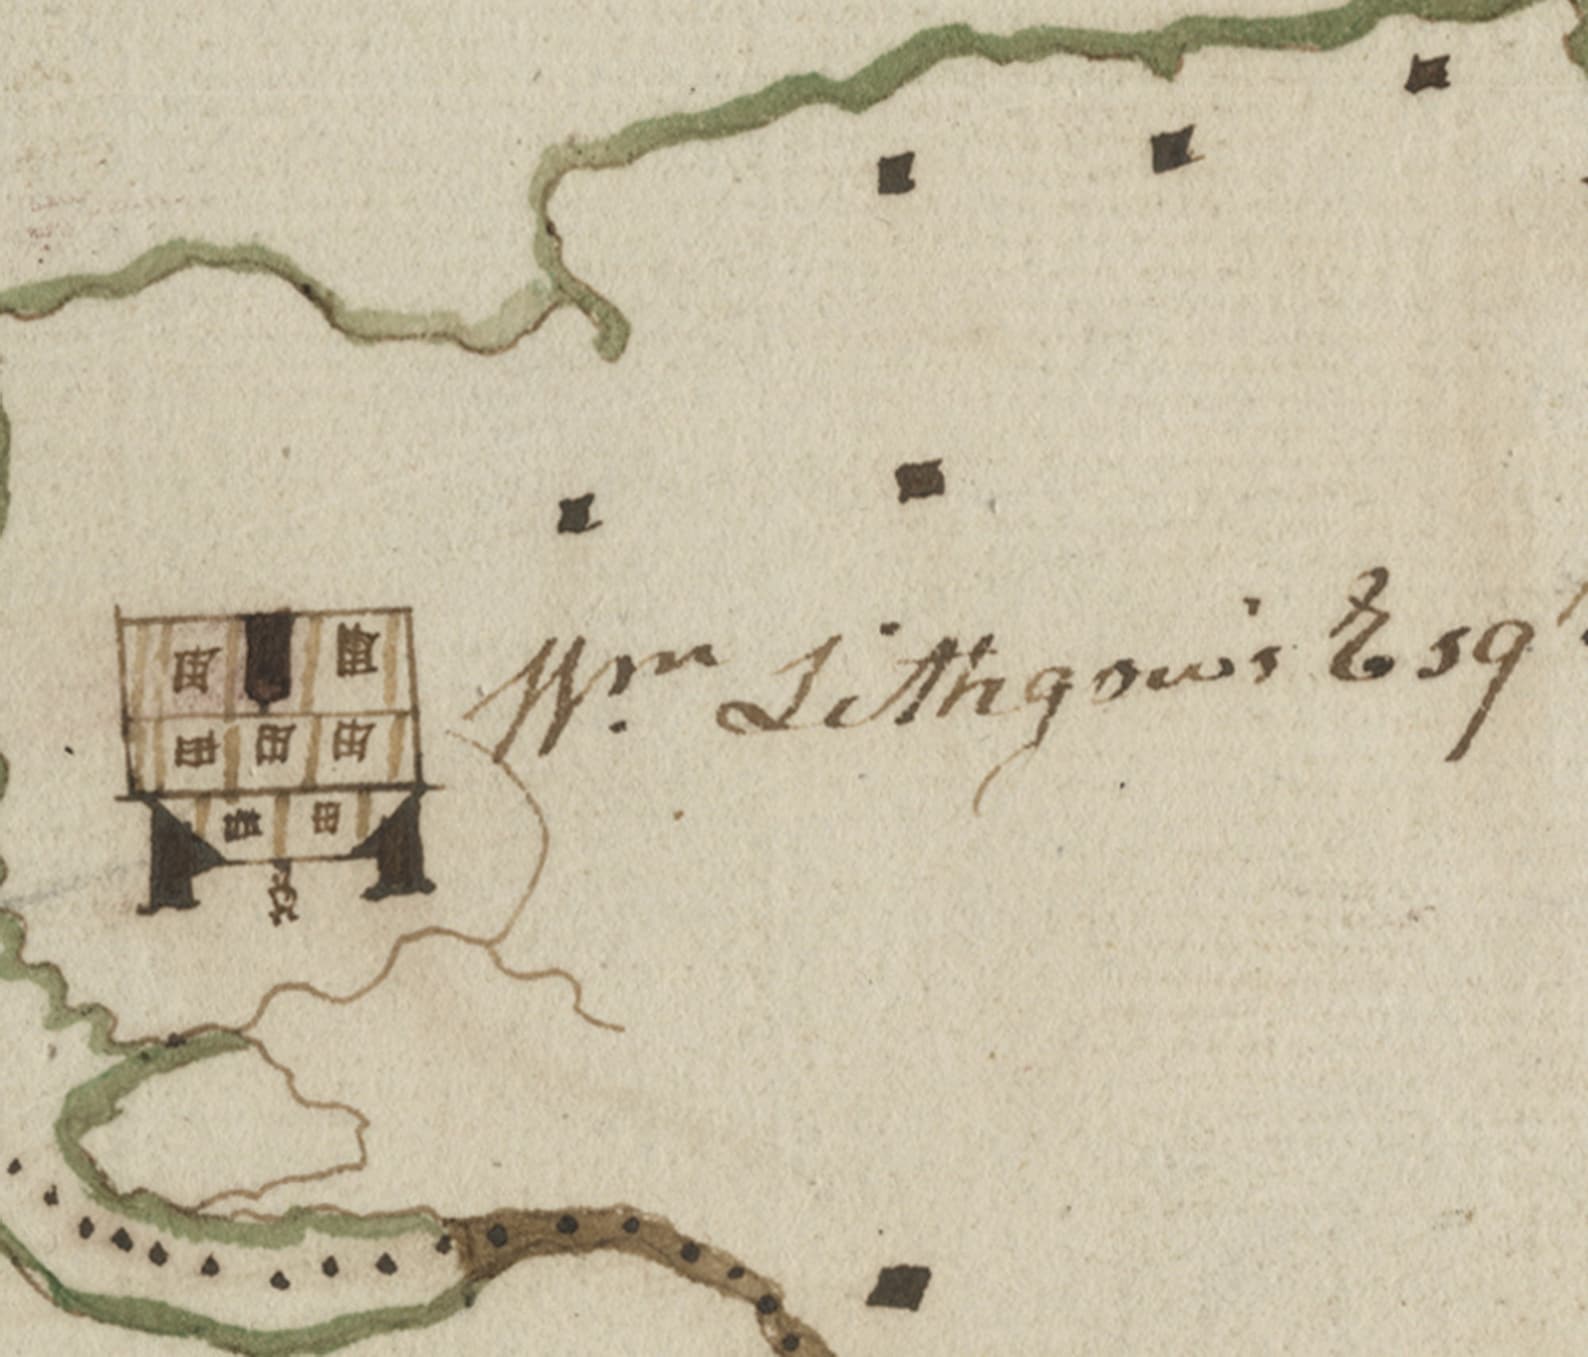 Wm. Lithgow's Esqr